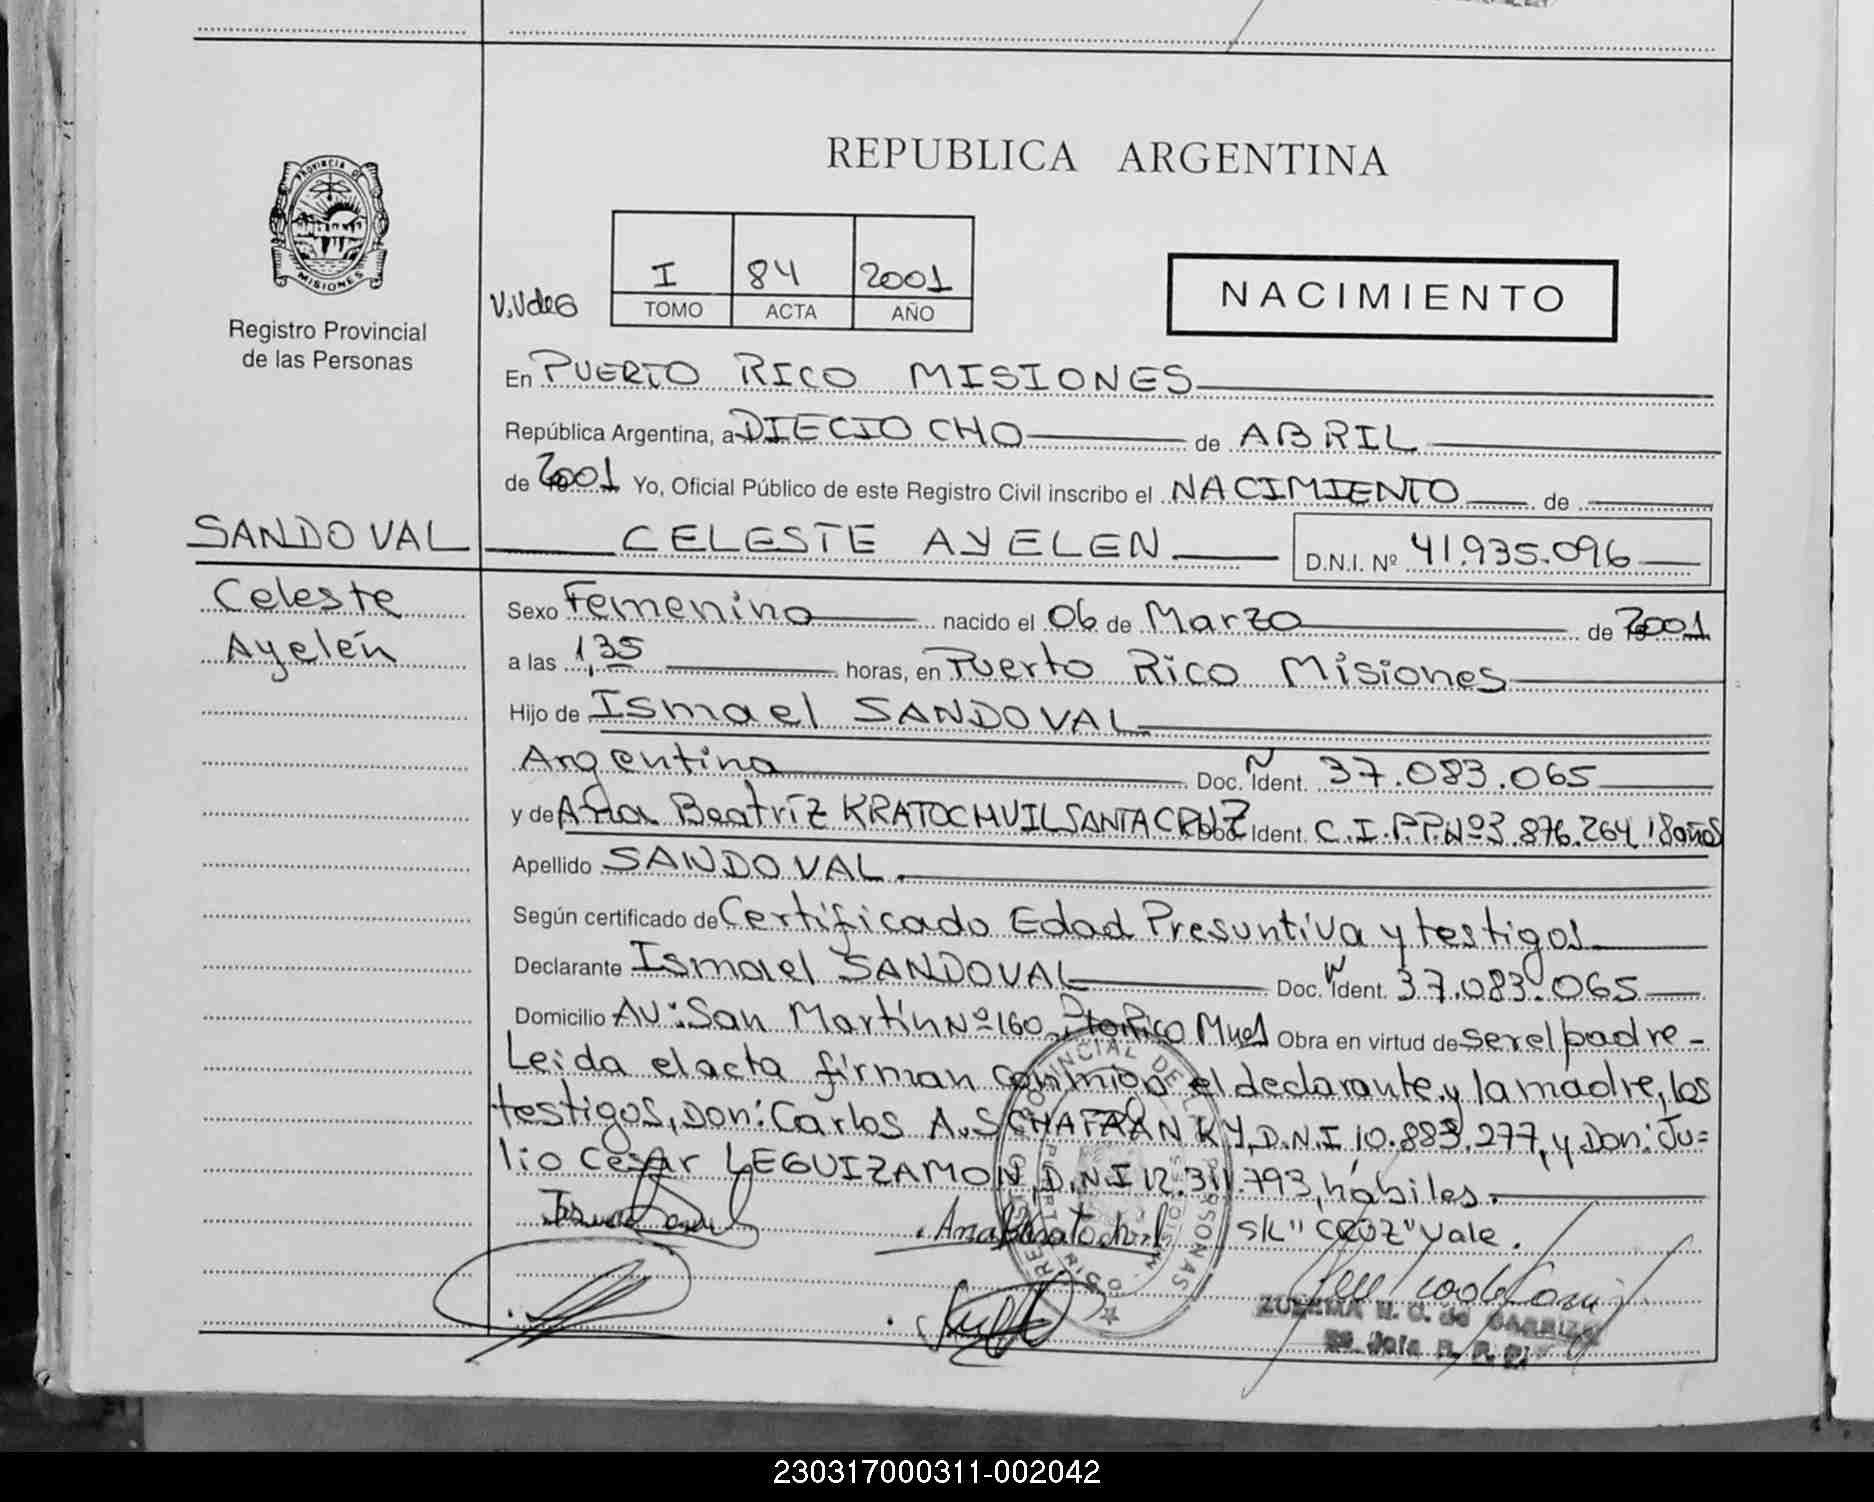 PROVINCIA DE
MISIONES
Registro Provincial
de las Personas
REPUBLICA ARGENTINA
I 84 2001
TOMO ACTA AÑO
NACIMIENTO
En PUERTO RICO MISIONES
República Argentina, a DIECIOCHO de ABRIL
de 2001 Yo, Oficial Público de este Registro Civil inscribo el NACIMIENTO de
SANDOVAL CELESTE AYELEN D.N.I. Nº 41.935.096
Celeste
Ayelén
Sexo Femenino nacido el 06 de Marzo de 2001
a las 1,35 horas, en Puerto Rico Misiones
Hijo de Ismael SANDOVAL
Argentina Doc. Ident. 37.083.065
y de Ana Beatríz KRATOCHVIL SANTA CRUZ Doc. Ident. C.I.P.P. Nº 3.876.264 18 años
Apellido SANDOVAL.
Según certificado de Certificado Edad Presuntiva y testigos
Declarante Ismael SANDOVAL Doc. Ident. 37.083.065
Domicilio AV: San Martín Nº 160 Pto Rico Mnes Obra en virtud de ser el padre -
Leida el acta firman conmigo el declarante y la madre, los
testigos, Don: Carlos A. SCHAFRAN K Y, D.N.I 10.883.277, y Don: Ju=
lio Cesar LEGUIZAMON, D.N.I 12.311.793, hábiles.
S/L "CRUZ" Vale.
REGISTRO PROVINCIAL DE LAS PERSONAS
230317000311-002042